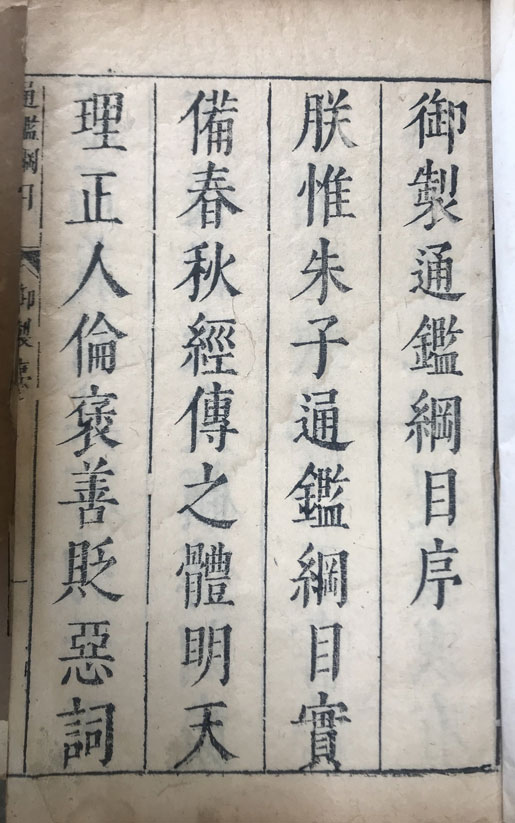 御製通鑑綱目序
朕惟朱子通鑑綱目實
備春秋經傳之體明天
理正人倫褒善貶惡詞
通鑑綱目 御製序